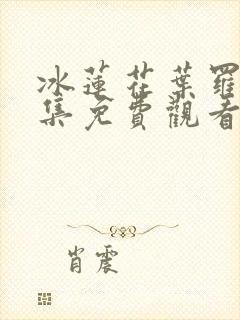 冰蓮花葉羅
集免費觀看
肖震